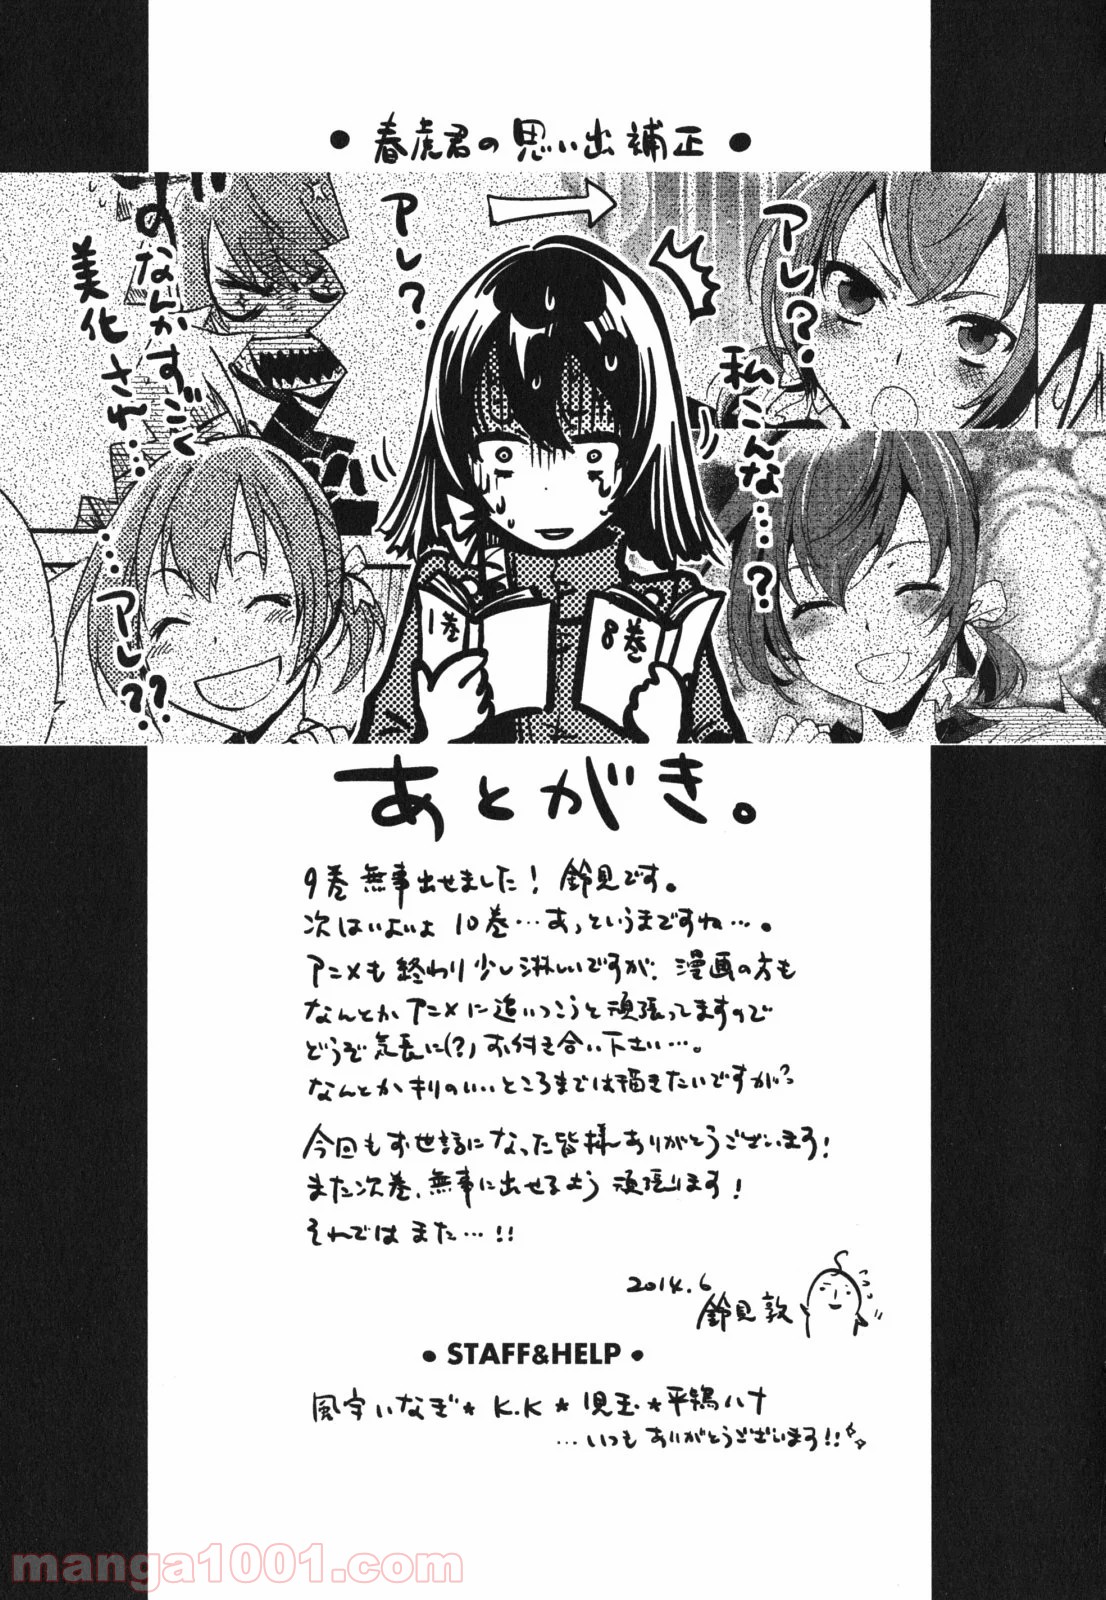 ● 春虎君の思い出補正 ●
アレ?
私こんな…?
アレ?
のなんかすごく
美化され…
…アレ??
1巻
8巻
あとがき。
9巻無事出せました! 鈴見です。
次はいよいよ 10巻…あっというまですね…。
アニメも終わり少し淋しいですが、漫画の方も
なんとかアニメに追いつこうと頑張ってますので
どうぞ気長に(?)お付き合い下さい…。
なんとかキリのいいところまでは描きたいですが?
今回もお世話になった皆様ありがとうございます!
また次巻、無事に出せるよう 頑張ります!
それではまた…!!
2014.6
鈴見敦
● STAFF&HELP ●
風宇いなぎ★ K.K ★ 児玉 ★ 平鴇ハナ
…いつもありがとうございます!!
manga1001.com